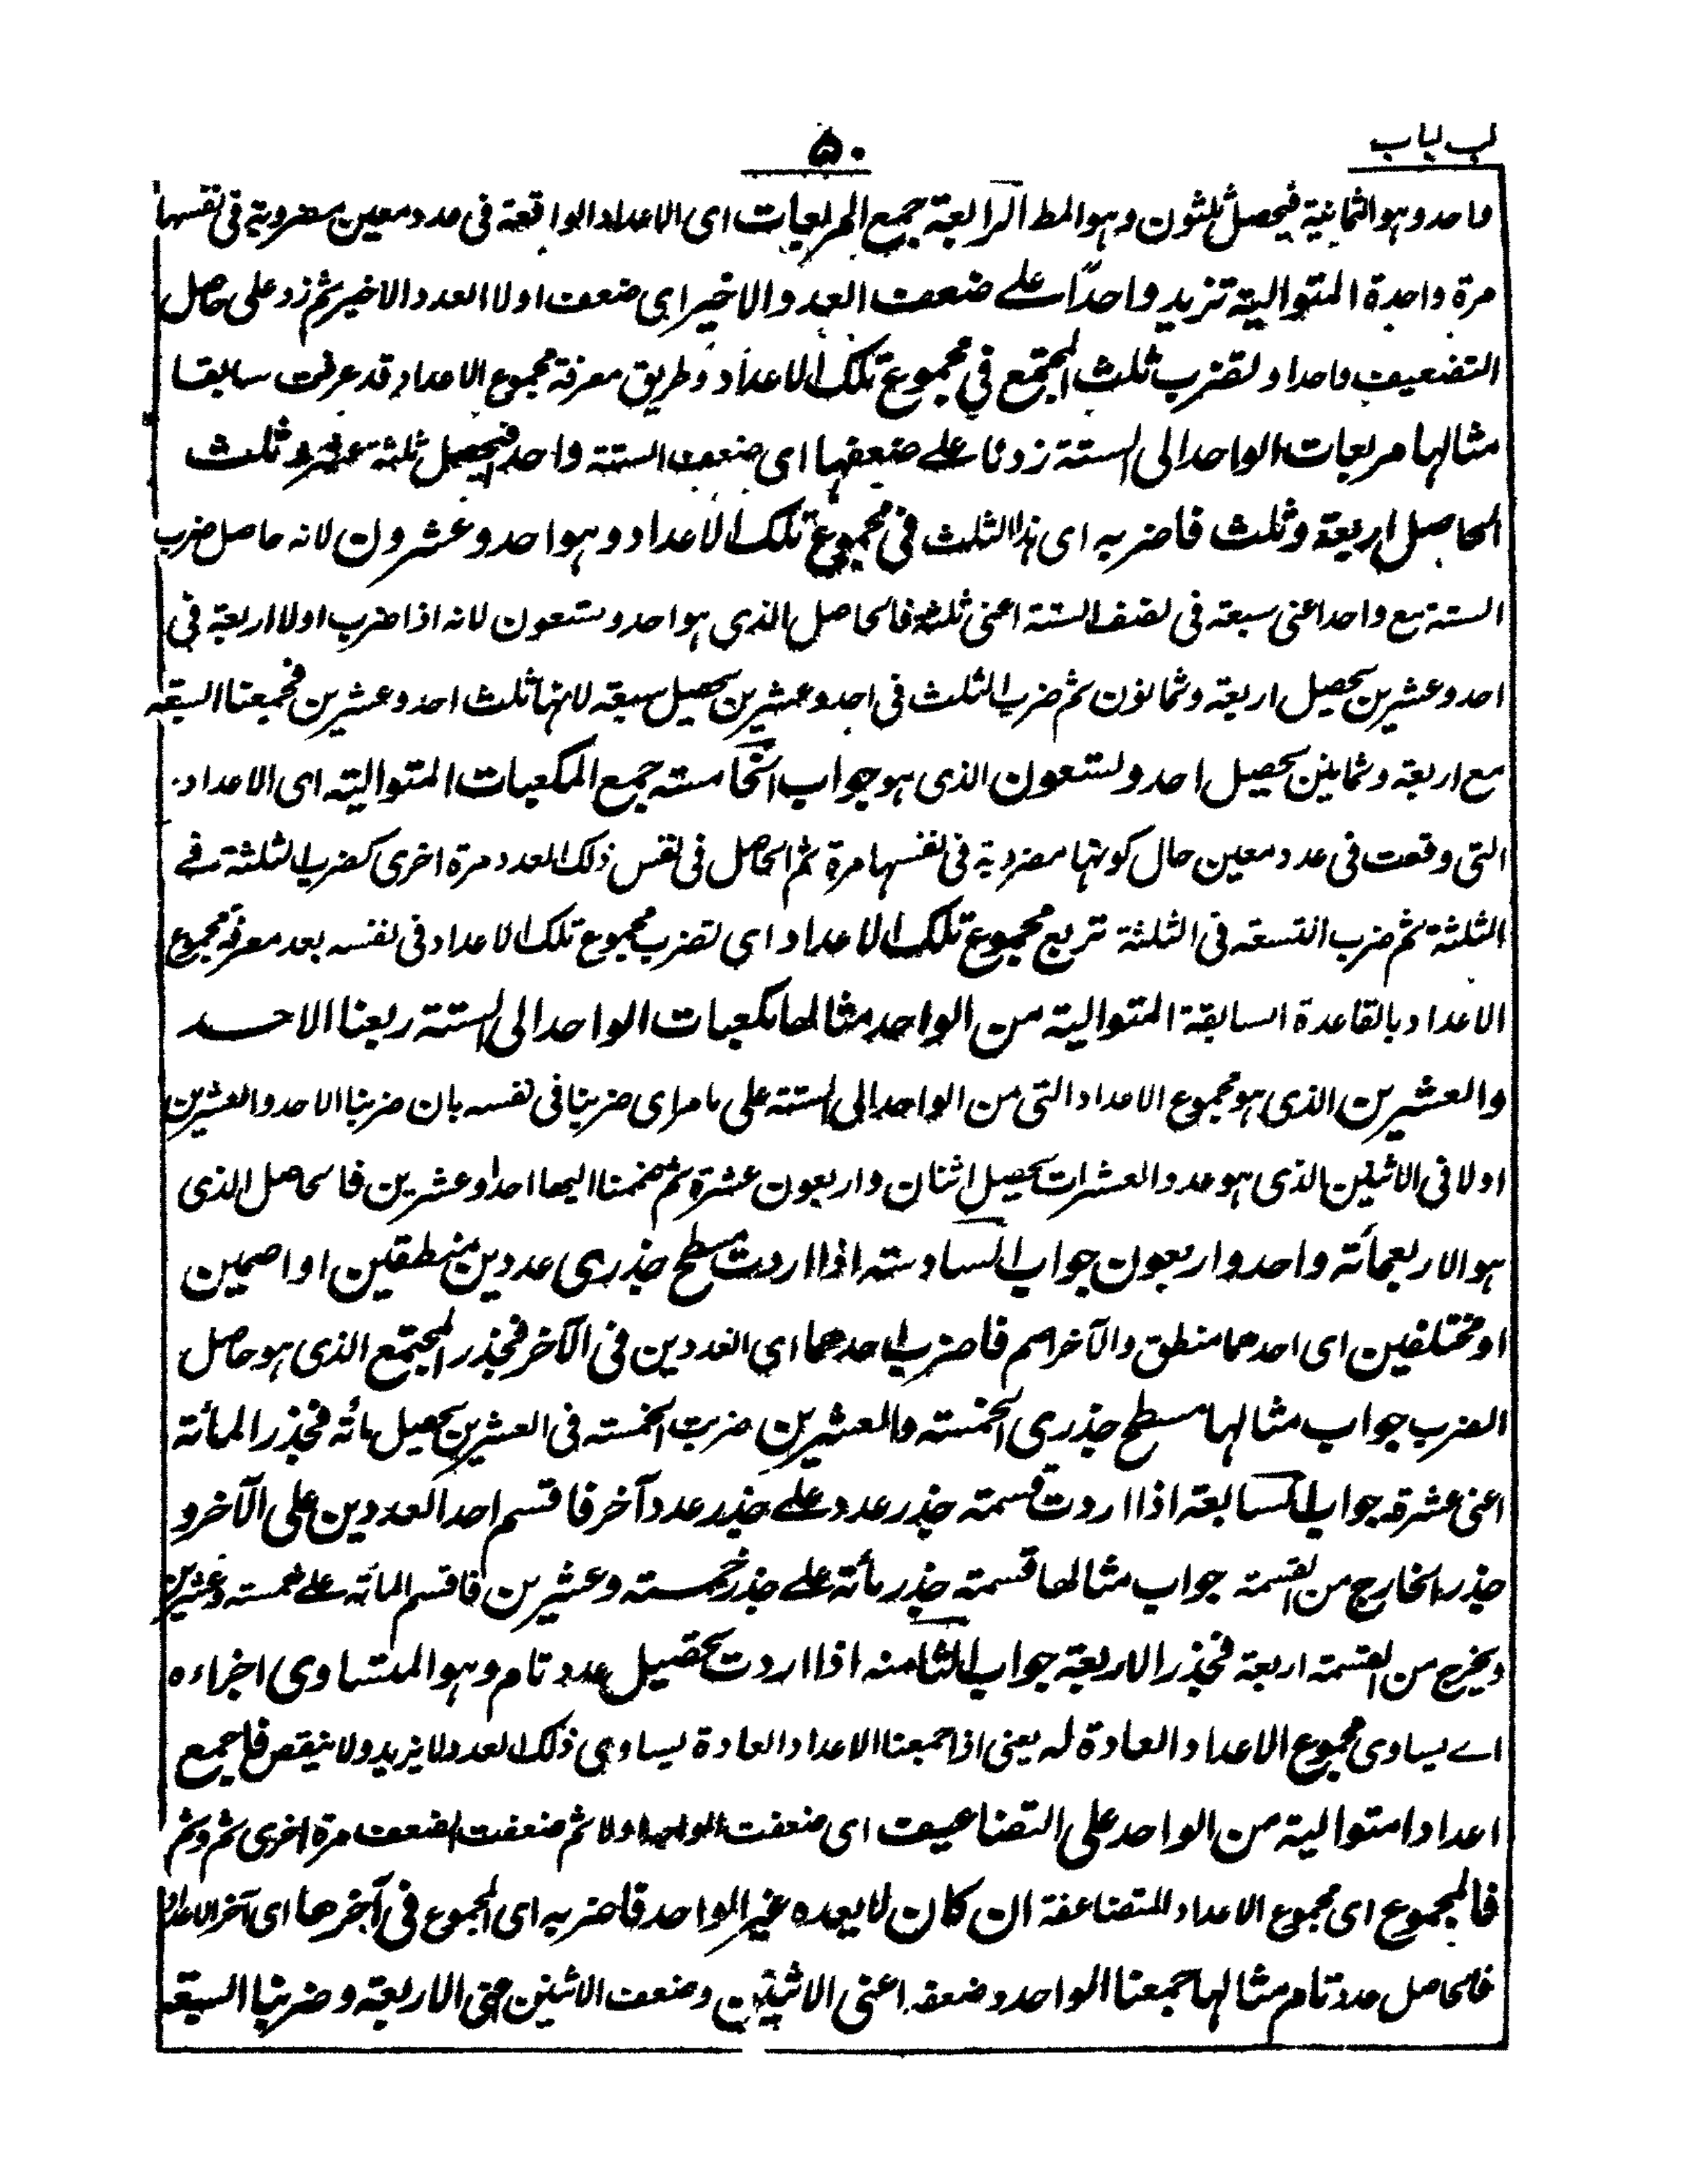 لب لباب
۵۰
واحد وہو الثمانیة فیحصل ثلثون وہو المط الرابعة جمع المربعات ای الاعداد الواقعة فی عدد معین مضروبة فی نفسہا
مرة واحدة المتوالیة تزید واحدًا علے ضعف العدد الاخیر ای ضعف اولا العدد الاخیر ثم زد علی حاصل
التضعیف واحدا و تضرب ثلث المجتمع فی مجموع تلک الاعداد وطریق معرفة مجموع الاعداد قد عرفت سابقا
مثالہا مربعات الواحد الی الستة زدنا علے ضعفہا ای ضعف الستة واحد فیحصل ثلثة عشر و ثلث
الحاصل اربعة وثلث فاضربہ ای ہذا الثلث فی مجموع تلک الاعداد وہو احد و عشرون لانہ حاصل ضرب
الستة مع واحد اعنی سبعة فی نصف الستة اعنی ثلثة فالحاصل الذی ہو احد و تسعون لانہ اذا ضرب اولا اربعة فی
احد و عشرین یحصل اربعة وثمانون ثم ضرب الثلث فی احد و عشرین یحصل سبعة لانہا ثلث احد و عشرین فجمعنا السبعة
مع اربعة و ثمانین یحصل احد و تسعون الذی ہو جواب الخامسة جمع المکعبات المتوالیة ای الاعداد
التی وقعت فی عدد معین حال کونہا مضروبة فی نفسہا مرة ثم الحاصل فی نفس ذلک العدد مرة اخری کضرب الثلثة فے
الثلثة ثم ضرب التسعة فی الثلثة تربع مجموع تلک الاعداد ای تضرب مجموع تلک الاعداد فی نفسہ بعد معرفة مجموع
الاعداد بالقاعدة السابقة المتوالیة من الواحد مثالها مکعبات الواحد الی الستة ربعنا الاحد
والعشرین الذی ہو مجموع الاعداد التی من الواحد الی الستة علی ما مر ای ضربنا فی نفسہ بان ضربنا الاحد والعشرین
اولا فی الاثنین الذی ہو عدد العشرات یحصل اثنان واربعون عشرة ثم ضممنا الیها احدا و عشرین فالحاصل الذی
ہو الاربعمأتة واحد واربعون جواب السادسة اذا اردت مسطح جذری عددین منطقین او اصمین
او مختلفین ای احدهما منطق والآخر اصم فاضرب احدهما ای العددین فی الآخر فجذر المجتمع الذی ہو حاصل
الضرب جواب مثالہا مسطح جذری الخمسة والعشرین ضربت الخمسة فی العشرین یحصل مأتة فجذر المأتة
اعنی عشرة جواب السابعة اذا اردت قسمة جذر عدد علے جذر عدد آخر فاقسم احد العددین علی الآخر و
جذر الخارج من القسمة جواب مثالها قسمة جذر مأتة علے جذر خمسة و عشرین فاقسم المأتة علے خمسة و عشرین
ویخرج من القسمة اربعة فجذر الاربعة جواب الثامنة اذا اردت تحصیل عدد تام وہو المتساوی اجزاءه
اے یساوی مجموع الاعداد العادة لہ یعنی اذا جمعنا الاعداد العادة یساوی ذلک العدد لا یزید ولا ینقص فاجمع
اعدادا متوالیة من الواحد علی التضاعیف ای ضعفت الواحد اولا ثم ضعفت الضعف مرة اخری ثم وثم
فالمجموع ای مجموع الاعداد المتضاعفة ان کان لا یعده غیر الواحد فاضربہ ای المجموع فی آخرها ای آخر الاعداد
فالحاصل عدد تام مثالہا جمعنا الواحد و ضعفہ اعنی الاثنین و ضعف الاثنین اعنی الاربعة و ضربنا السبعة